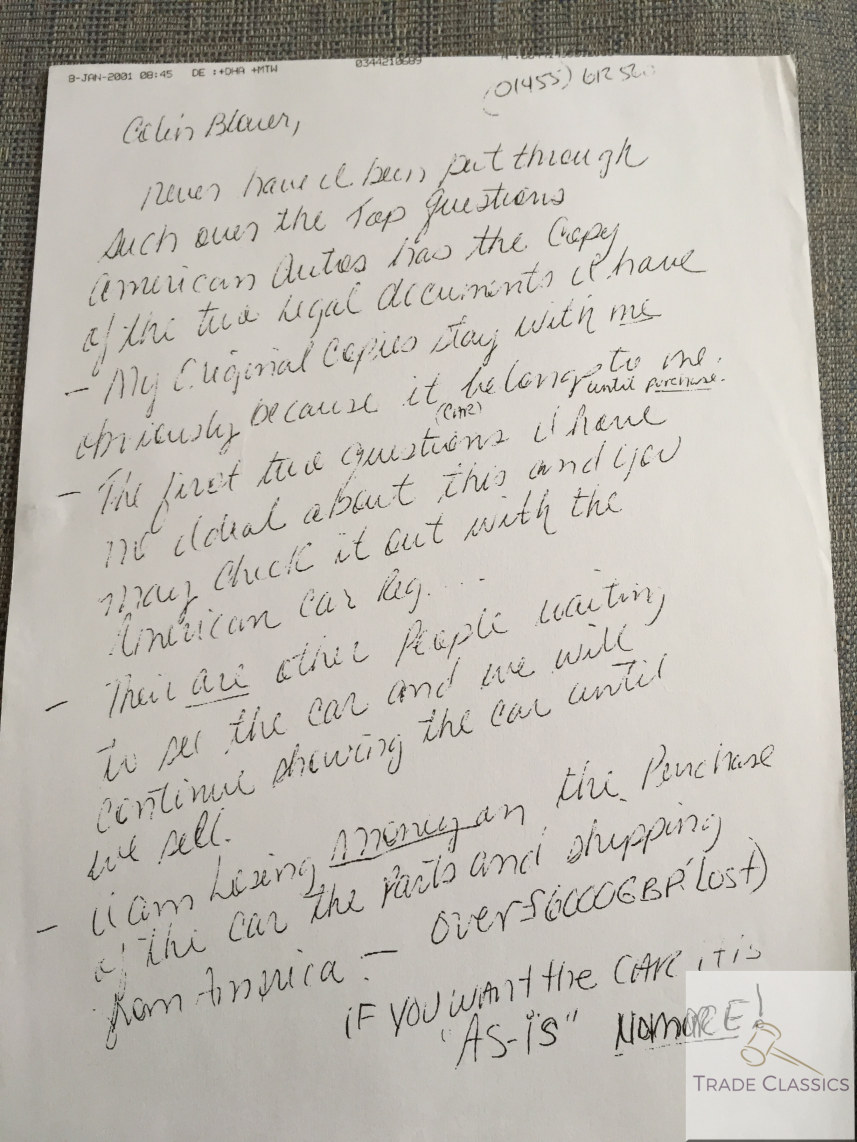 8-JAN-2001 08:45 DE :+DHA +MTW 0344210689
(01455) 612
Colin
Never have I been put through
such over the Top Questions
American Autos has the Copy
of the two Legal documents I have
- My Original Copies stay with me
obviously because it belongs to me.
until purchase.
(CAR)
- The first two questions I have
no ideal about this and you
may check it out with the
American Car Reg....
- Their are other People waiting
to see the car and we will
continue showing the car until
we sell.
- I am Losing Money on the Purchase
of the car the Parts and shipping
from America - over £6000GBP. Lost)
iF YOU WANT the CAR it is
"AS-IS" NO MORE!
TRADE CLASSICS